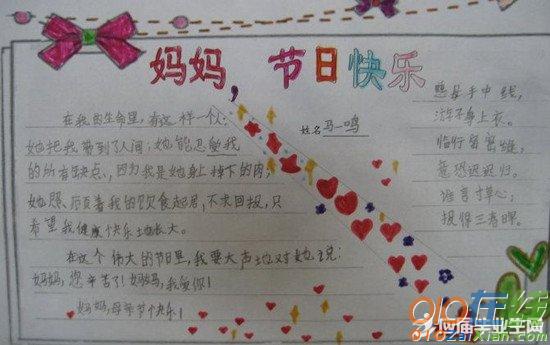 妈妈，节日快乐
姓名 马一鸣
在我的生命里，有这样一个人：
她把我带到了人间；她能忍受我
的所有缺点，因为我是她身上掉下的肉；
她照顾着我的饮食起居，不求回报，只
希望我健康快乐地长大。
在这个伟大的节日里，我要大声地对她说：
妈妈，您辛苦了！妈妈，我爱你！
妈妈，母亲节快乐！
慈母手中线，
游子身上衣。
临行密密缝，
意恐迟迟归。
谁言寸草心，
报得三春晖。
应届毕业生网
910在线
910zaixian.com